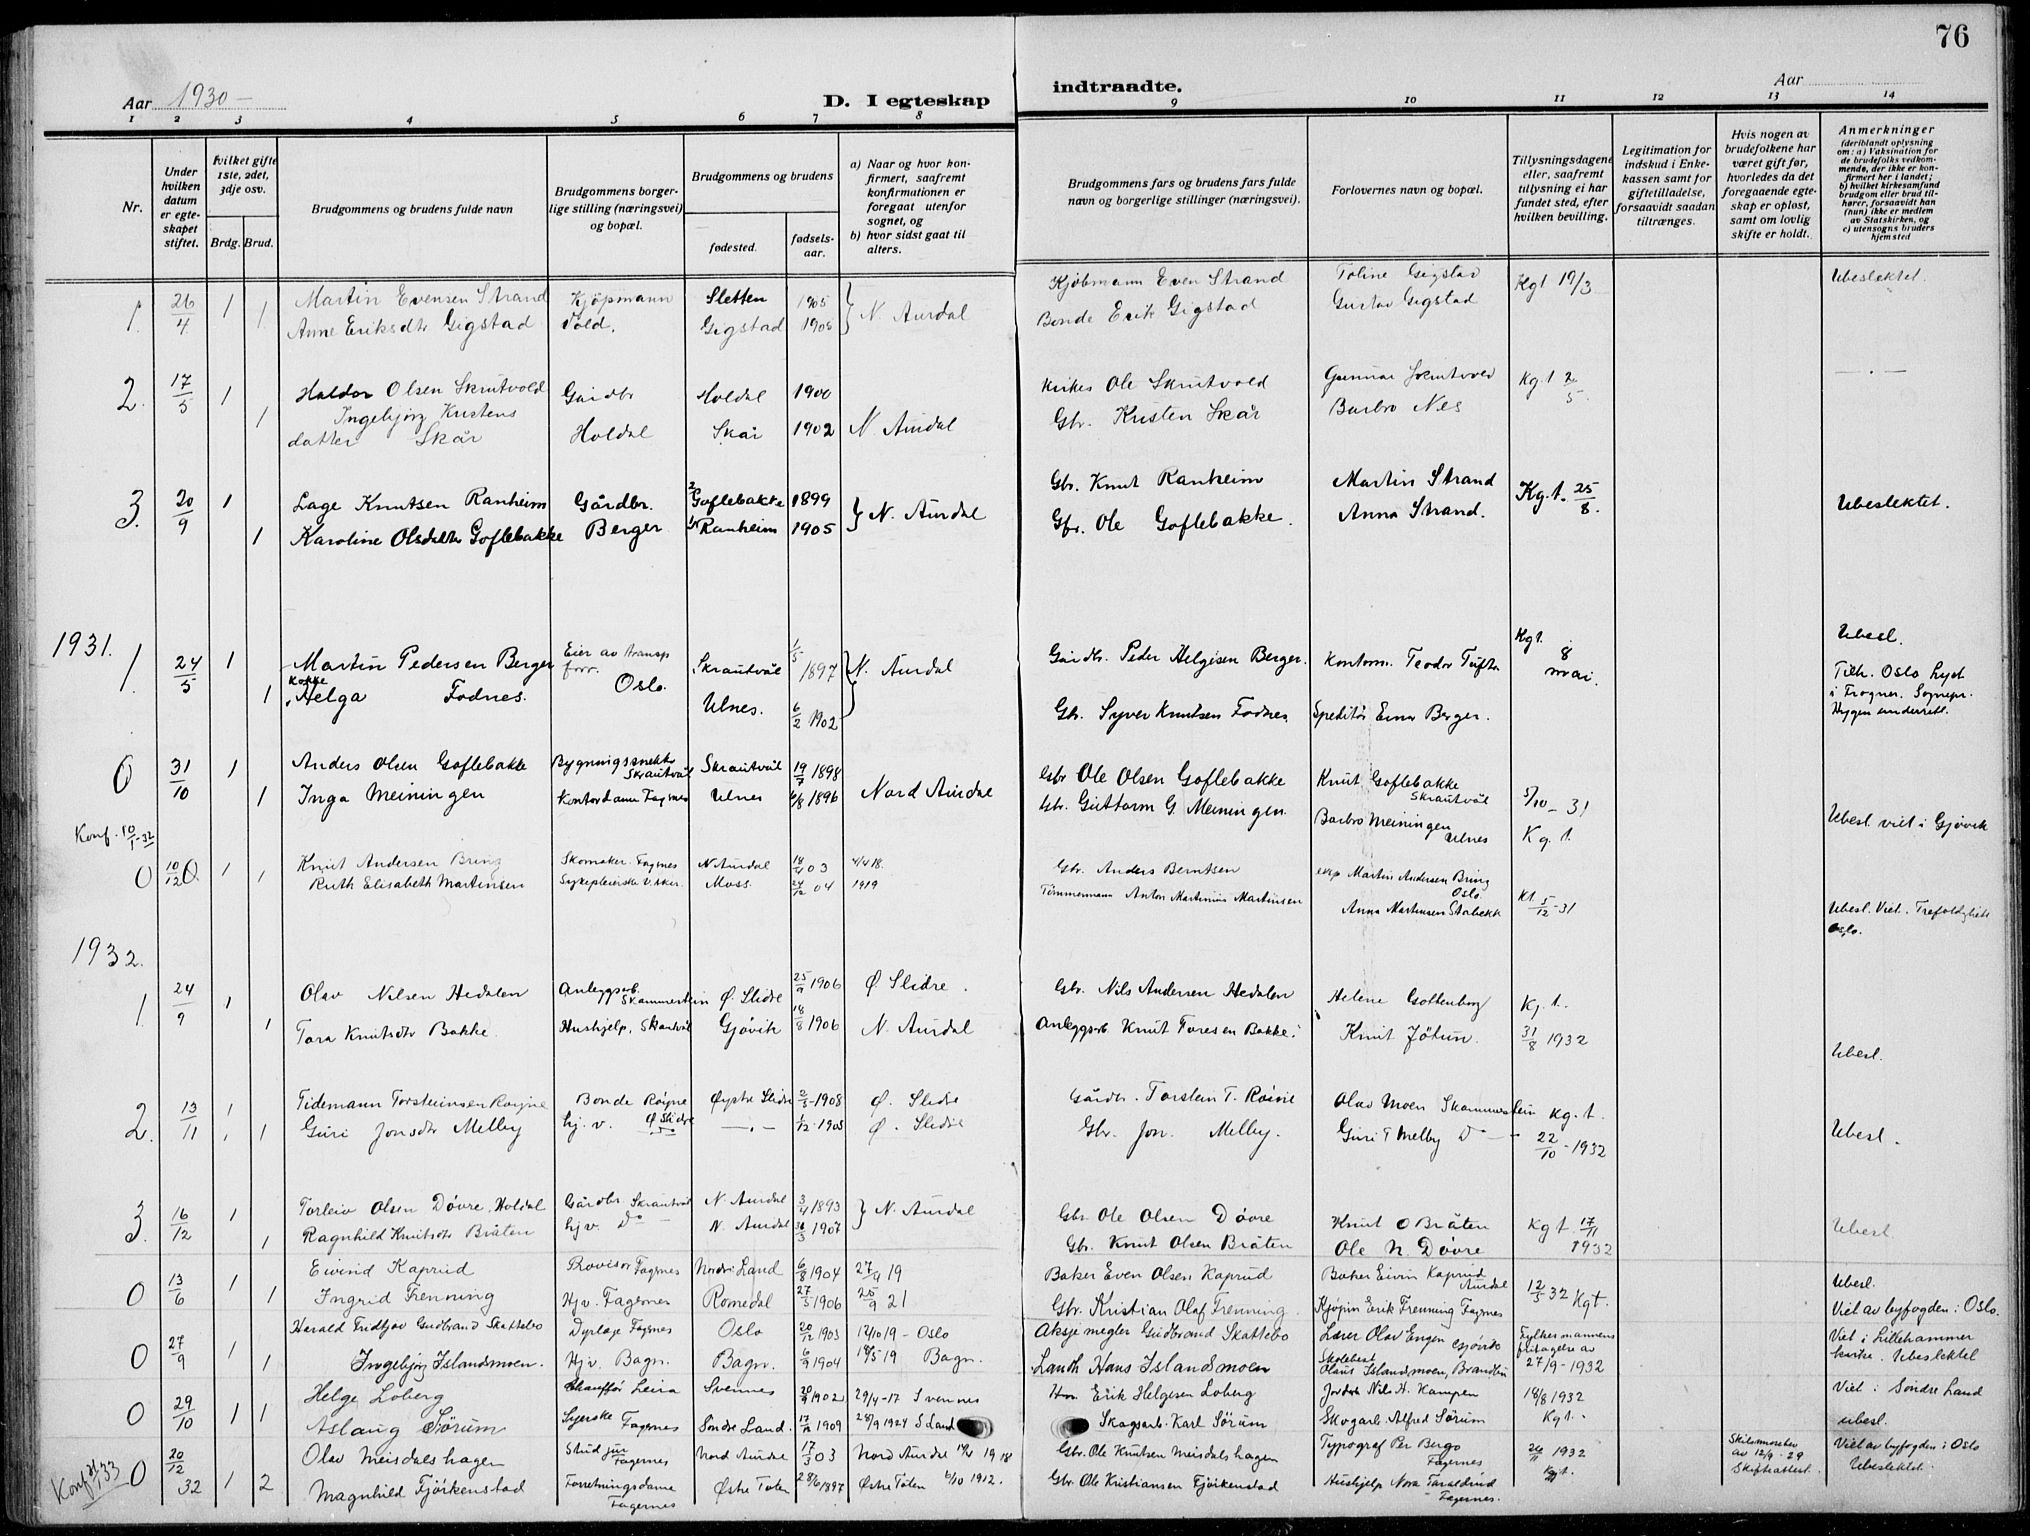 76
Aar 1930 –
D. I egteskap
indtraadte.
Aar
1 2 3 4 5 6 7 8 9 10 11 12 13 14
Nr.
Under hvilken datum er egteskapet stiftet.
Hvilket gifte 1ste, 2det, 3dje osv.
Brdg. Brud.
Brudgommens og brudens fulde navn
Brudgommens borgerlige stilling (næringsvei) og bopæl.
Brudgommens og brudens
fødested.
fødselsaar.
a) Naar og hvor konfirmert, saafremt konfirmationen er foregaat utenfor sognet, og
b) hvor sidst gaat til alters.
Brudgommens fars og brudens fars fulde navn og borgerlige stillinger (næringsvei).
Forlovernes navn og bopæl.
Tillysningsdagene eller, saafremt tillysning ei har fundet sted, efter hvilken bevilling.
Legitimation for indskud i Enkekassen samt for giftetilladelse, forsaavidt saadan tiltrænges.
Hvis nogen av brudefolkene har været gift før, hvorledes da det foregaaende egteskap er opløst, samt om lovlig skifte er holdt.
Anmerkninger (deriblandt oplysning om: a) Vaksination for de brudefolks vedkommende, der ikke er konfirmert her i landet; b) hvilket kirkesamfund brudgom eller brud tilhører, forsaavidt han (hun) ikke er medlem av Statskirken, og c) utensogns bruders hjemsted
1. 26/4 1 Martin Evensen Strand Kjøpmann Sletten 1905 } N. Aurdal Kjøbmann Even Strand Toline Gigstad Kgl 19/3 Ubeslektet.
1 Anne Eriksdtr Gigstad Vold. Gigstad 1905 Bonde Erik Gigstad Gustav Gigstad
2. 17/5 1 Haldor Olsen Skrutvold Gårdbr Holdal 1900 Kirkes Ole Skrutvold Gunnar Skrutvold Kg.l 2/5. — . —
1 Ingebjørg Kristens
datter Skår Holdal Skår 1902 N. Aurdal Gbr. Kristen Skår Barbro Nes
3. 20/9 1 Lage Knutsen Ranheim Gårdbr. Goflebakke 1899 } N. Aurdal Gbr. Knut Ranheim Martin Strand Kg.l. 25/8. Ubeslektet.
1 Karoline Olsdatter Goflebakke Berger Ranheim 1905 Gbr. Ole Goflebakke. Anna Strand.
1931.
1. 24/5 1 Martin Pedersen Berger Eier av transp forr. Skrautvål 1/5 1897 } N. Aurdal Gårdbr. Peder Helgesen Berger. Kontorm. Teodor Tufte Kgl. 8 mai. Ubesl.
1 Helga Fodnes. Oslo. Ulnes. 6/2 1902 Gbr. Syver Knutsen Fodnes Speditør Einar Berger. Tilh. Oslo
i Frogner. Sognepr.
Hygen underrett.
0 31/10 1 Anders Olsen Goflebakke Bygningssnekker Skrautvål Skrautvål 19/7 1898 Gbr Ole Olsen Goflebakke Knut Goflebakke Skrautvål 5/10 – 31
1 Inga Meiningen Kontordame Fagernes Ulnes 6/8 1896 Nord Aurdal Gbr. Guttorm G. Meiningen. Barbro Meiningen Ulnes Kg. l. Ubesl. viet i Gjøvik
Konf. 10/1-32
0 10/12 0 1 Knut Andersen Bring Skomaker. Fagernes N Aurdal 18/4 03 4/4 18. Gbr. Anders Berntsen Martin Andersen Bring Oslo
1 Ruth Elisabeth Martinsen Sykepleierske V. Aker. Moss 24/12 04 1919 Tømmermann Anton Martinius Martinsen Anna Martinsen Stabekk Kl 5/12-31 Ubesl. Viet. Trefoldighets Oslo.
1932.
1. 24/9 1 Olav Nilsen Hedalen Anleggsarb. Skammerstein Ø. Slidre 25/9 1906 Ø. Slidre. Gbr. Nils Andersen Hedalen Helene Gottenborg Kg. l.
1 Tora Knutsdtr Bakke. Hushjelp, Skrautvål Gjøvik 18/8 1906 N. Aurdal Anleggsarb. Knut Toresen Bakke. Knut Jøtun. 31/8 1932 Ubesl.
2. 13/11 1 Tidemann Torsteinsen Røyne Bonde Røyne Øystre Slidre 2/5-1908 Ø. Slidre Gårdbr. Torstein T. Røine Olav Moen Skammerstein Kg. l.
1 Guri Jonsdtr Melby hj. v. Ø Slidre — . — 1/12-1905 Ø. Slidre Gbr. Jon. Melby. Guri T Melby D° — 22/10-1932 Ubesl.
3. 16/12 1 Torleiv Olsen Døvre, Holdal Gårdbr. Skrautvål N. Aurdal 3/4 1893 } N. Aurdal Gbr. Ole Olsen Døvre Knut O Bråten Kg l 17/11 1932 Ubesl
1 Ragnhild Knutsdtr Bråten hj v. D° – N. Aurdal 30/3 1907 Gbr. Knut Olsen Bråten Ole N. Døvre
0 13/6 1 Eivind Kaprud Provisor Fagernes Nordre Land 6/8 1904 27/9 19 Baker Even Olsen Kaprud Baker Eivin Kaprud Aurdal 12/5 32 Kgl. Ubesl.
1 Ingrid Frenning Hjv. Fagernes Romedal 27/5 1906 25/9 21 Gbr. Kristian Olaf Frenning. Kjøpm Erik Frenning Fagernes Viet av byfogden i Oslo.
0 27/9 1 Harald Fridtjov Gudbrand Skattebo Dyrlege Fagernes Oslo 20/12 1903 12/10 19 – Oslo Aksjemegler Gudbrand Skattebo Lærer Olav Engen Gjøvik Fylkesmannens fritagelse av 27/9 - 1932 Viet i Lillehammer kirke. Ubeslektet
1 Ingebjørg Islandsmoen. Hjv. Bagn. Bagn. 6/9 1904 18/5 19 Bagn. Landh. Hans Islandsmoen Skolebest Olaus Islandsmoen, Brandbu
0 29/10 1 Helge Loberg Chauffør Leira Svennes 20/9 1902 29/4-17 Svennes Erik Helgesen Loberg Nils H. Kampen 18/8 1932 Viet i Søndre Land
1 Aslaug Sørum Syerske Fagernes Søndre Land. 1909 28/9 1924 S Land Skogsarb. Karl Sørum Skogarb. Alfred Sørum Kgl. ubesl.
Konf 33
0 20/12 32 1 Olav Meisdalshagen Stud jur Fagernes Nord Aurdal 17/3 03 Nord Aurdal 1918 Gbr. Ole Knutsen Meisdalshagen Typograf Per Bergo Fagernes 26/11 1932 Kgl. Skilsmissebev av 12/9 - 29 Skifteattest. Viet av byfogden i Oslo Ubeslektet.
2 Magnhild Fjörkenstad Forretningsdame Fagernes Østre Toten 28/6 1897 Østre Toten 6/10 1912. Gbr. Ole Kristiansen Fjörkenstad Hushjelp Nora Taraldrud Fagernes.